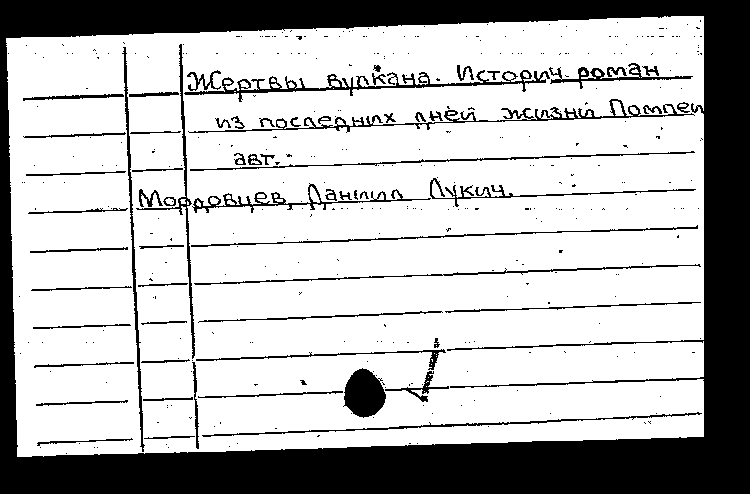 Жертвы вулкана. Историч. роман
из последних дней жизни Помпеи
авт.:
Мордовцев, Даниил Лукич.